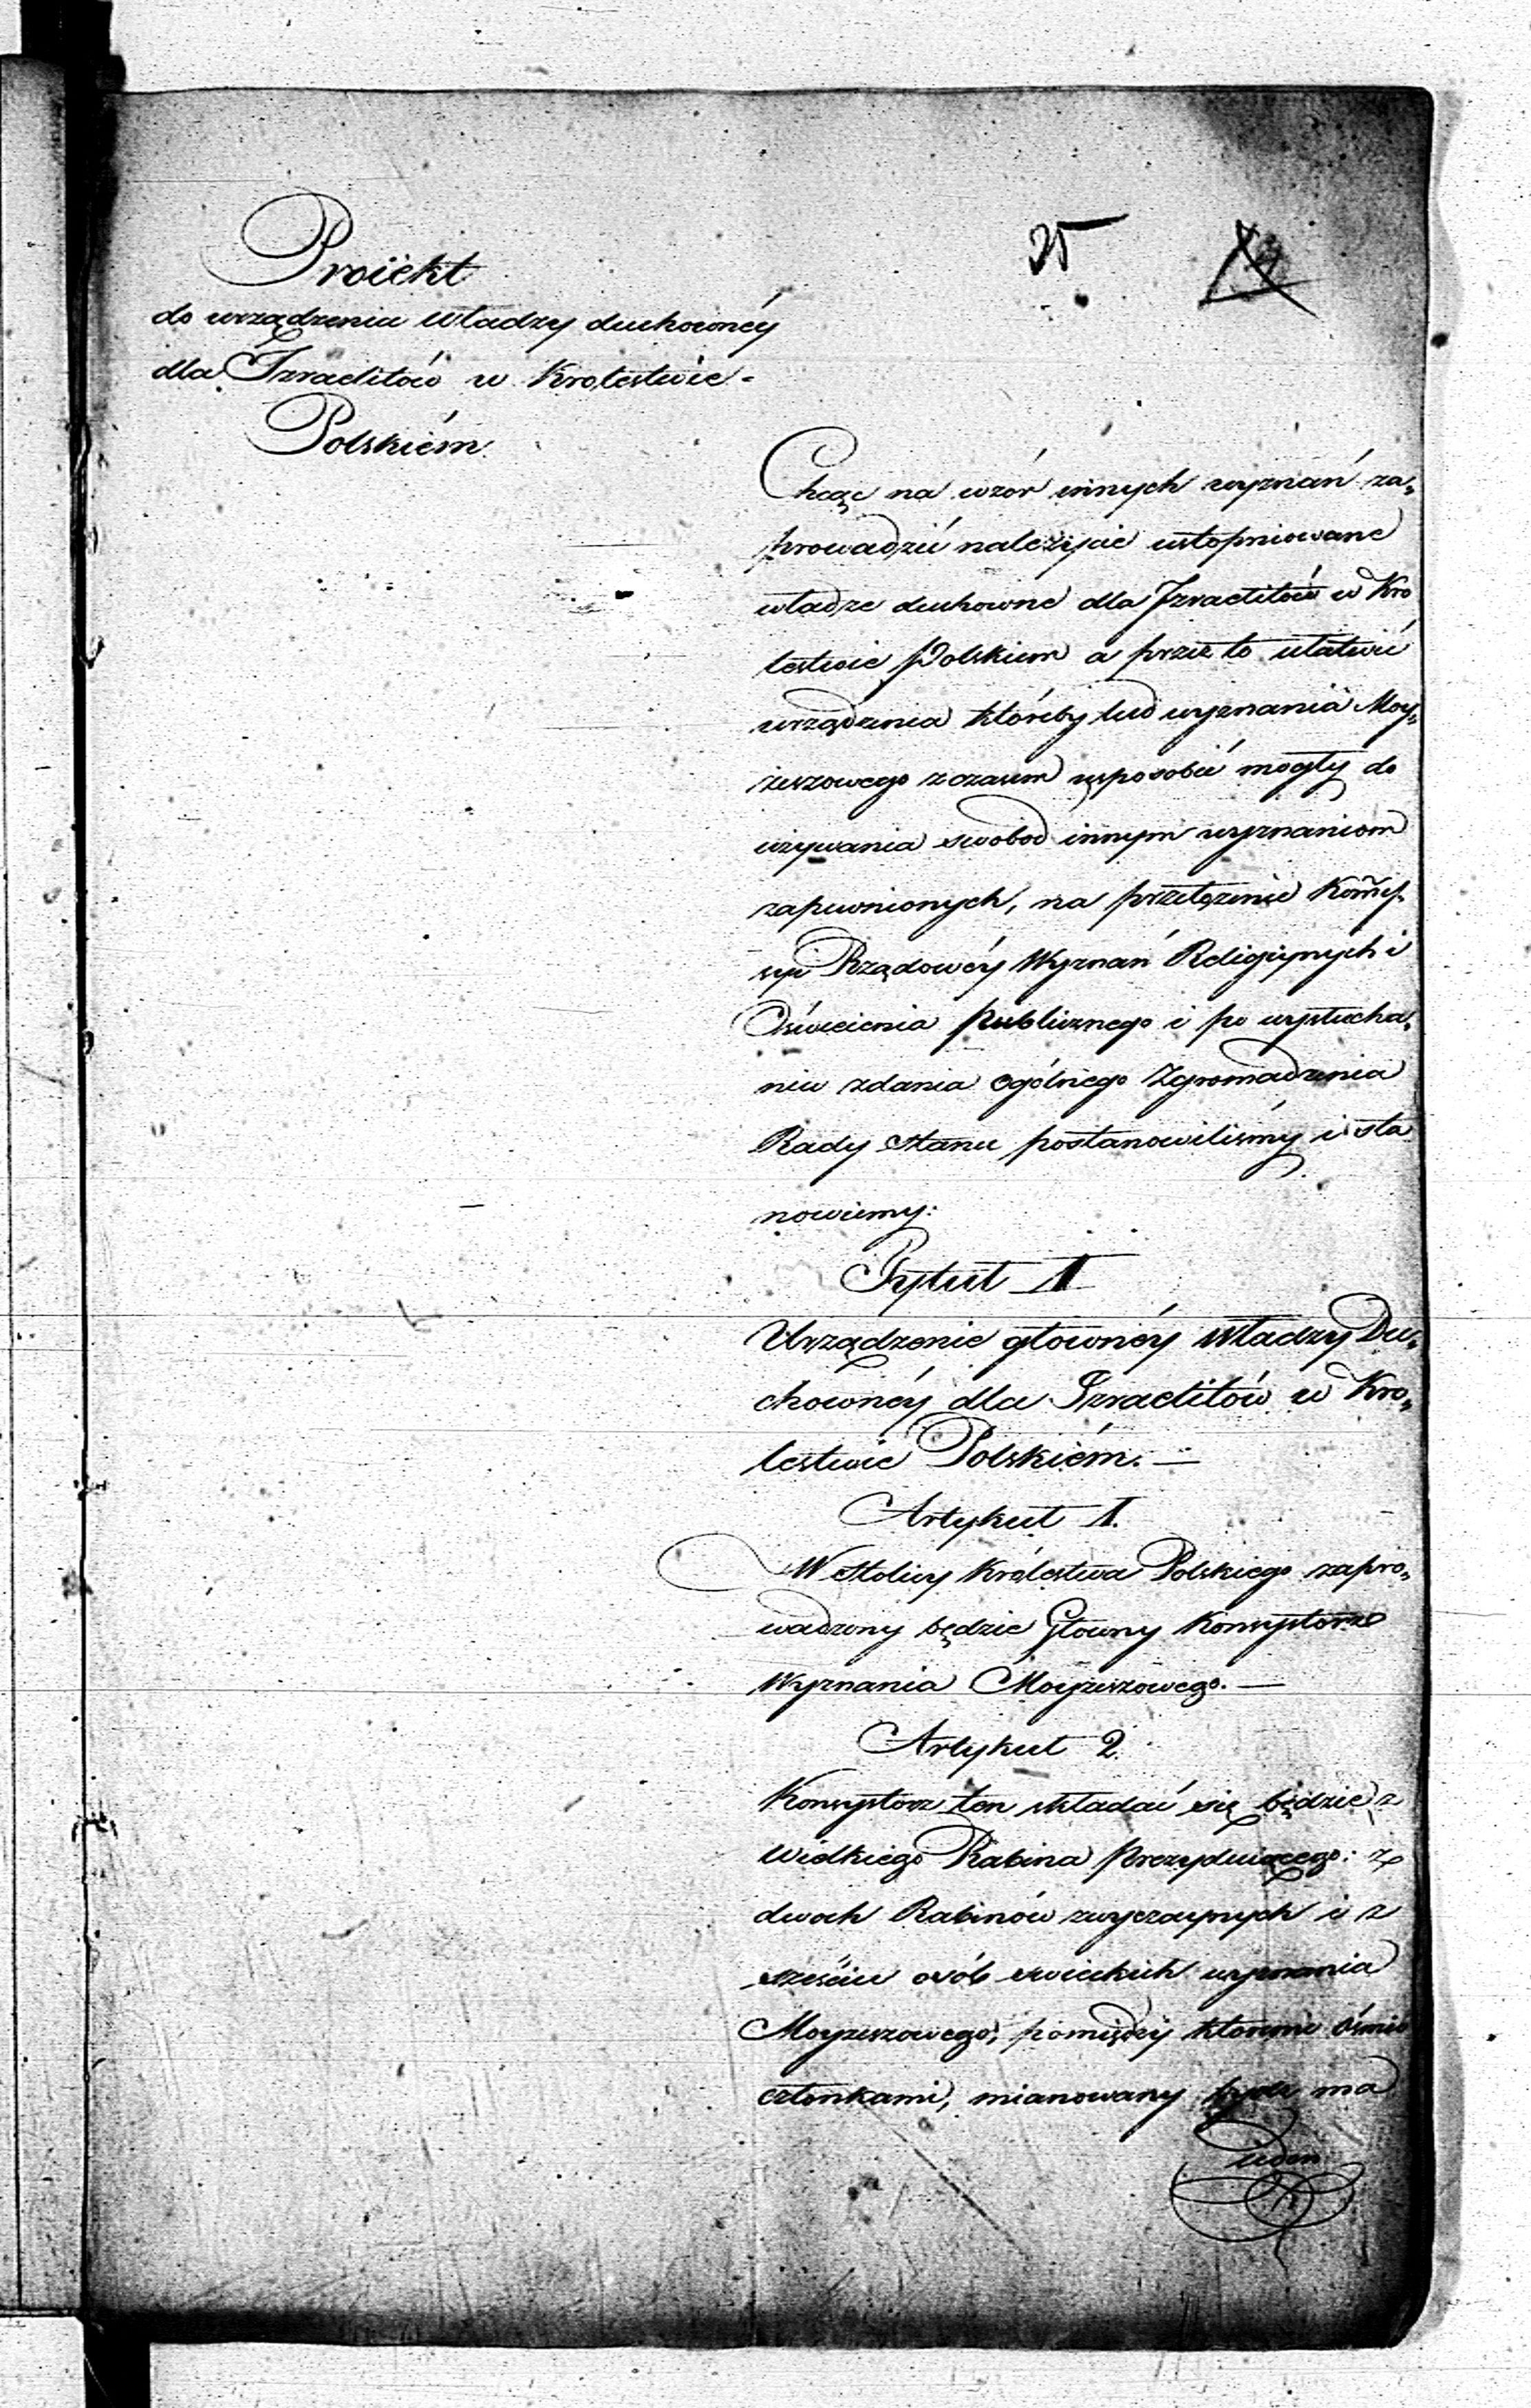 Proiekt
do urządzenia Władzy duchownéy
dla Izraelitów w Krolestwie=
Polskiém.
25
Chcąc na wzór innych wyznań za„
prowadzić należycie ustopniowane
władze duchowne dla Izraelitów w Kro
lestwie Polskiem a przez to ułatwić
urządzenia któreby lud wyznania Moy„
żeszowego z czasem usposobić mogły do
używania swobod innym wyznaniom
zapewnionych, na przełożenie Kom̃is„
syi Rządowéy Wyznań Religiynych i
Oświecenia publicznego i po wysłucha„
niu zdania ogólnego Zgromadzenia
Rady Stanu postanowiliśmy i sta
nowiemy:
Tytuł I
Urządzenie głownéy Władzy Du„
chownéy dla Izraelitów w Kro„
lestwie Polskiém.—
Artykuł 1.
W Stolicy Królestwa Polskiego zapro„
wadzony będzie Głowny Konsystorz
Wyznania Moyżeszowego.—
Artykuł 2.
Konsystorz ten składać się będzie z
Wielkiego Rabina Prezyduiącego: z
dwoch Rabinów zwyczaynych i z
sześciu osób swieckich wyznania
Moyżeszowego, pomiędzy któremi ośmio
członkami, mianowany bydz ma
ieden